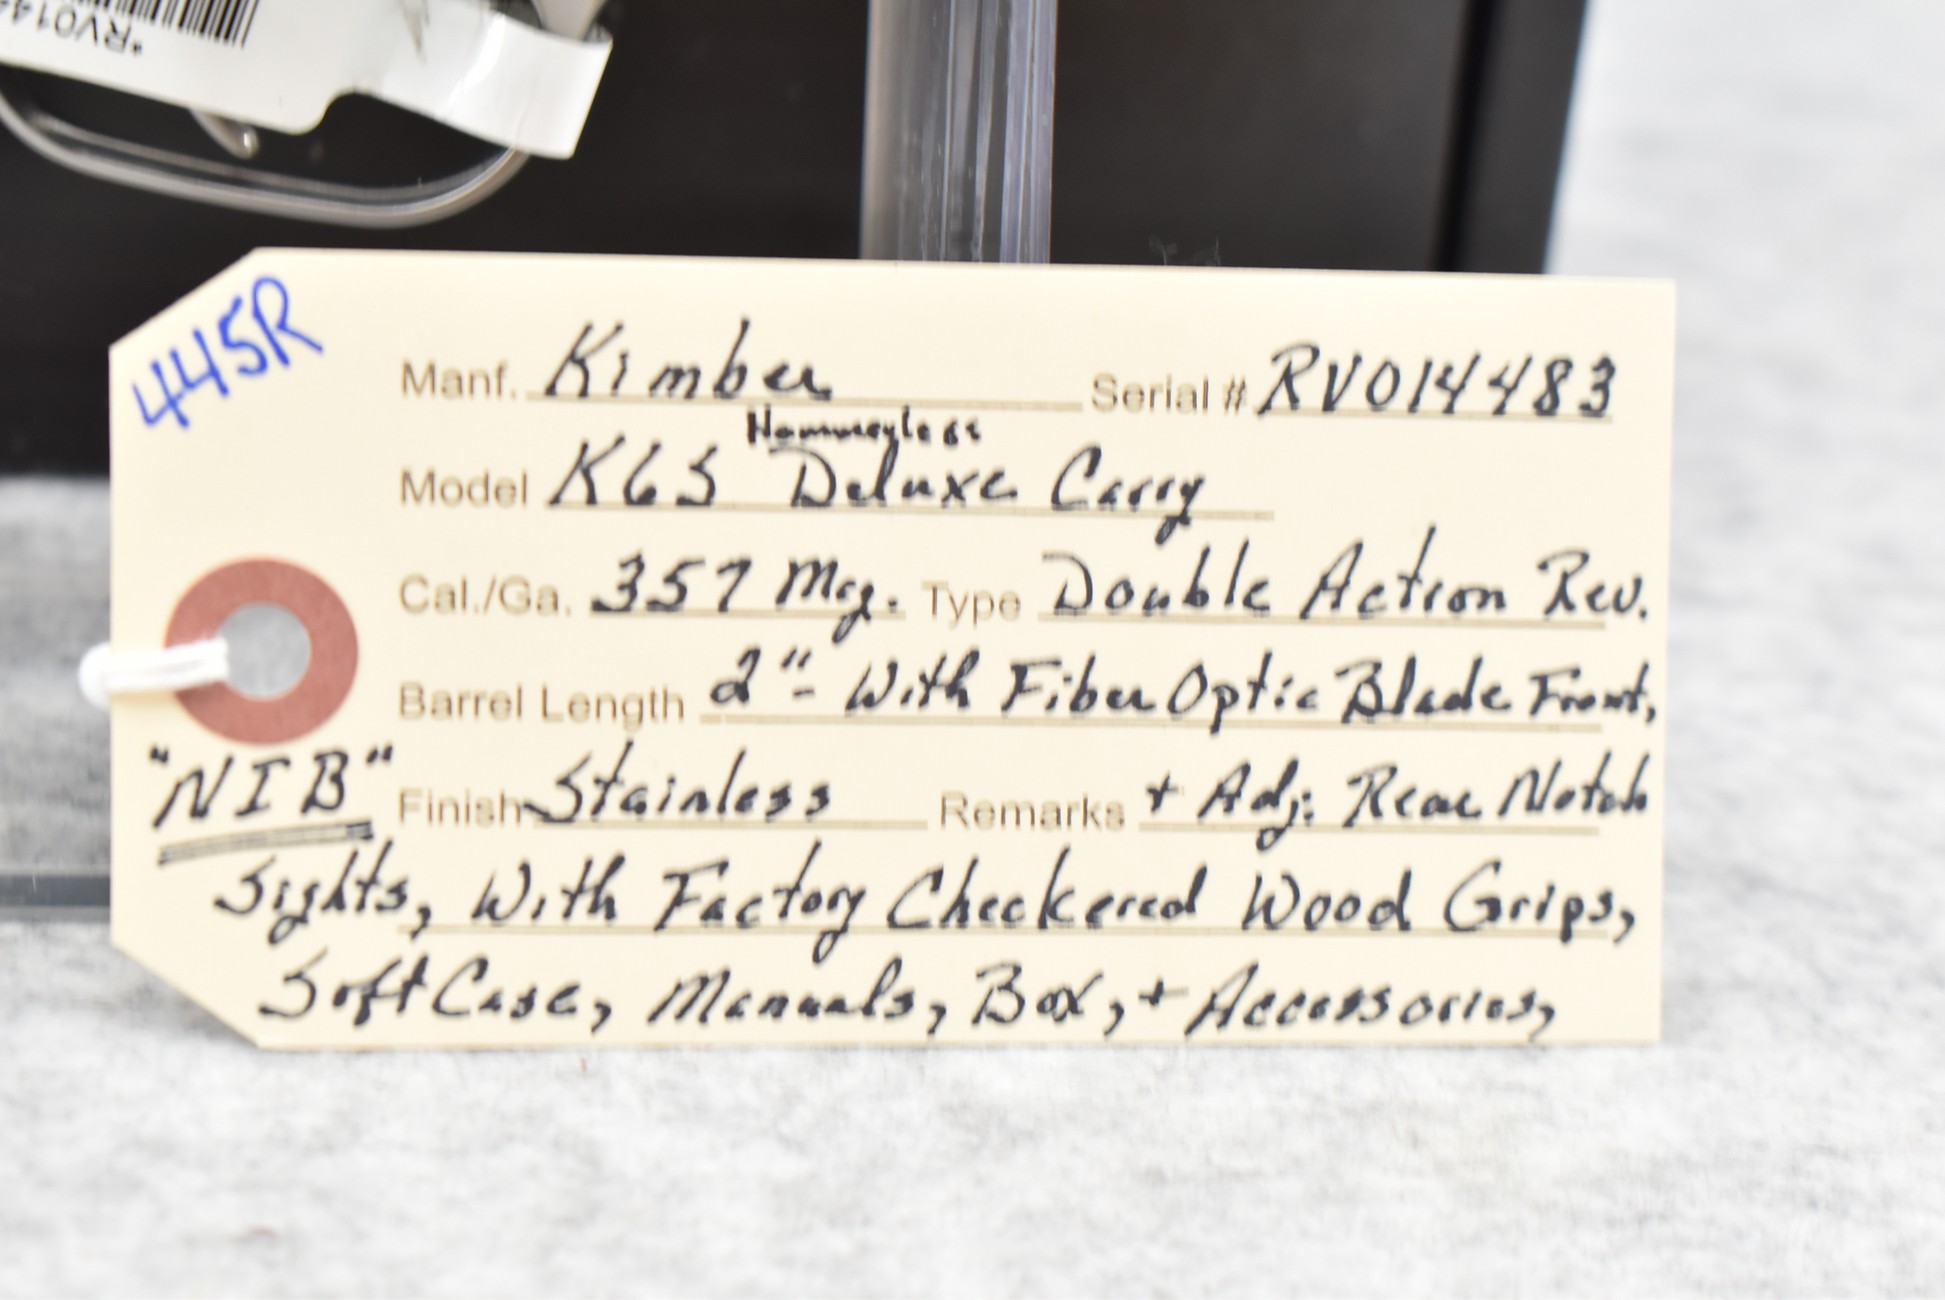 *RV014
445R
Manf. Kimber Serial # RV014483
Hammerless
Model K6S Deluxe Carry
Cal./Ga. 357 Mag. Type Double Action Rev.
Barrel Length 2"- With Fiber Optic Blade Front,
"NIB" Finish Stainless Remarks + Adj. Rear Notch
Sights, With Factory Checkered Wood Grips,
Soft Case, Manuals, Box, + Accessories,